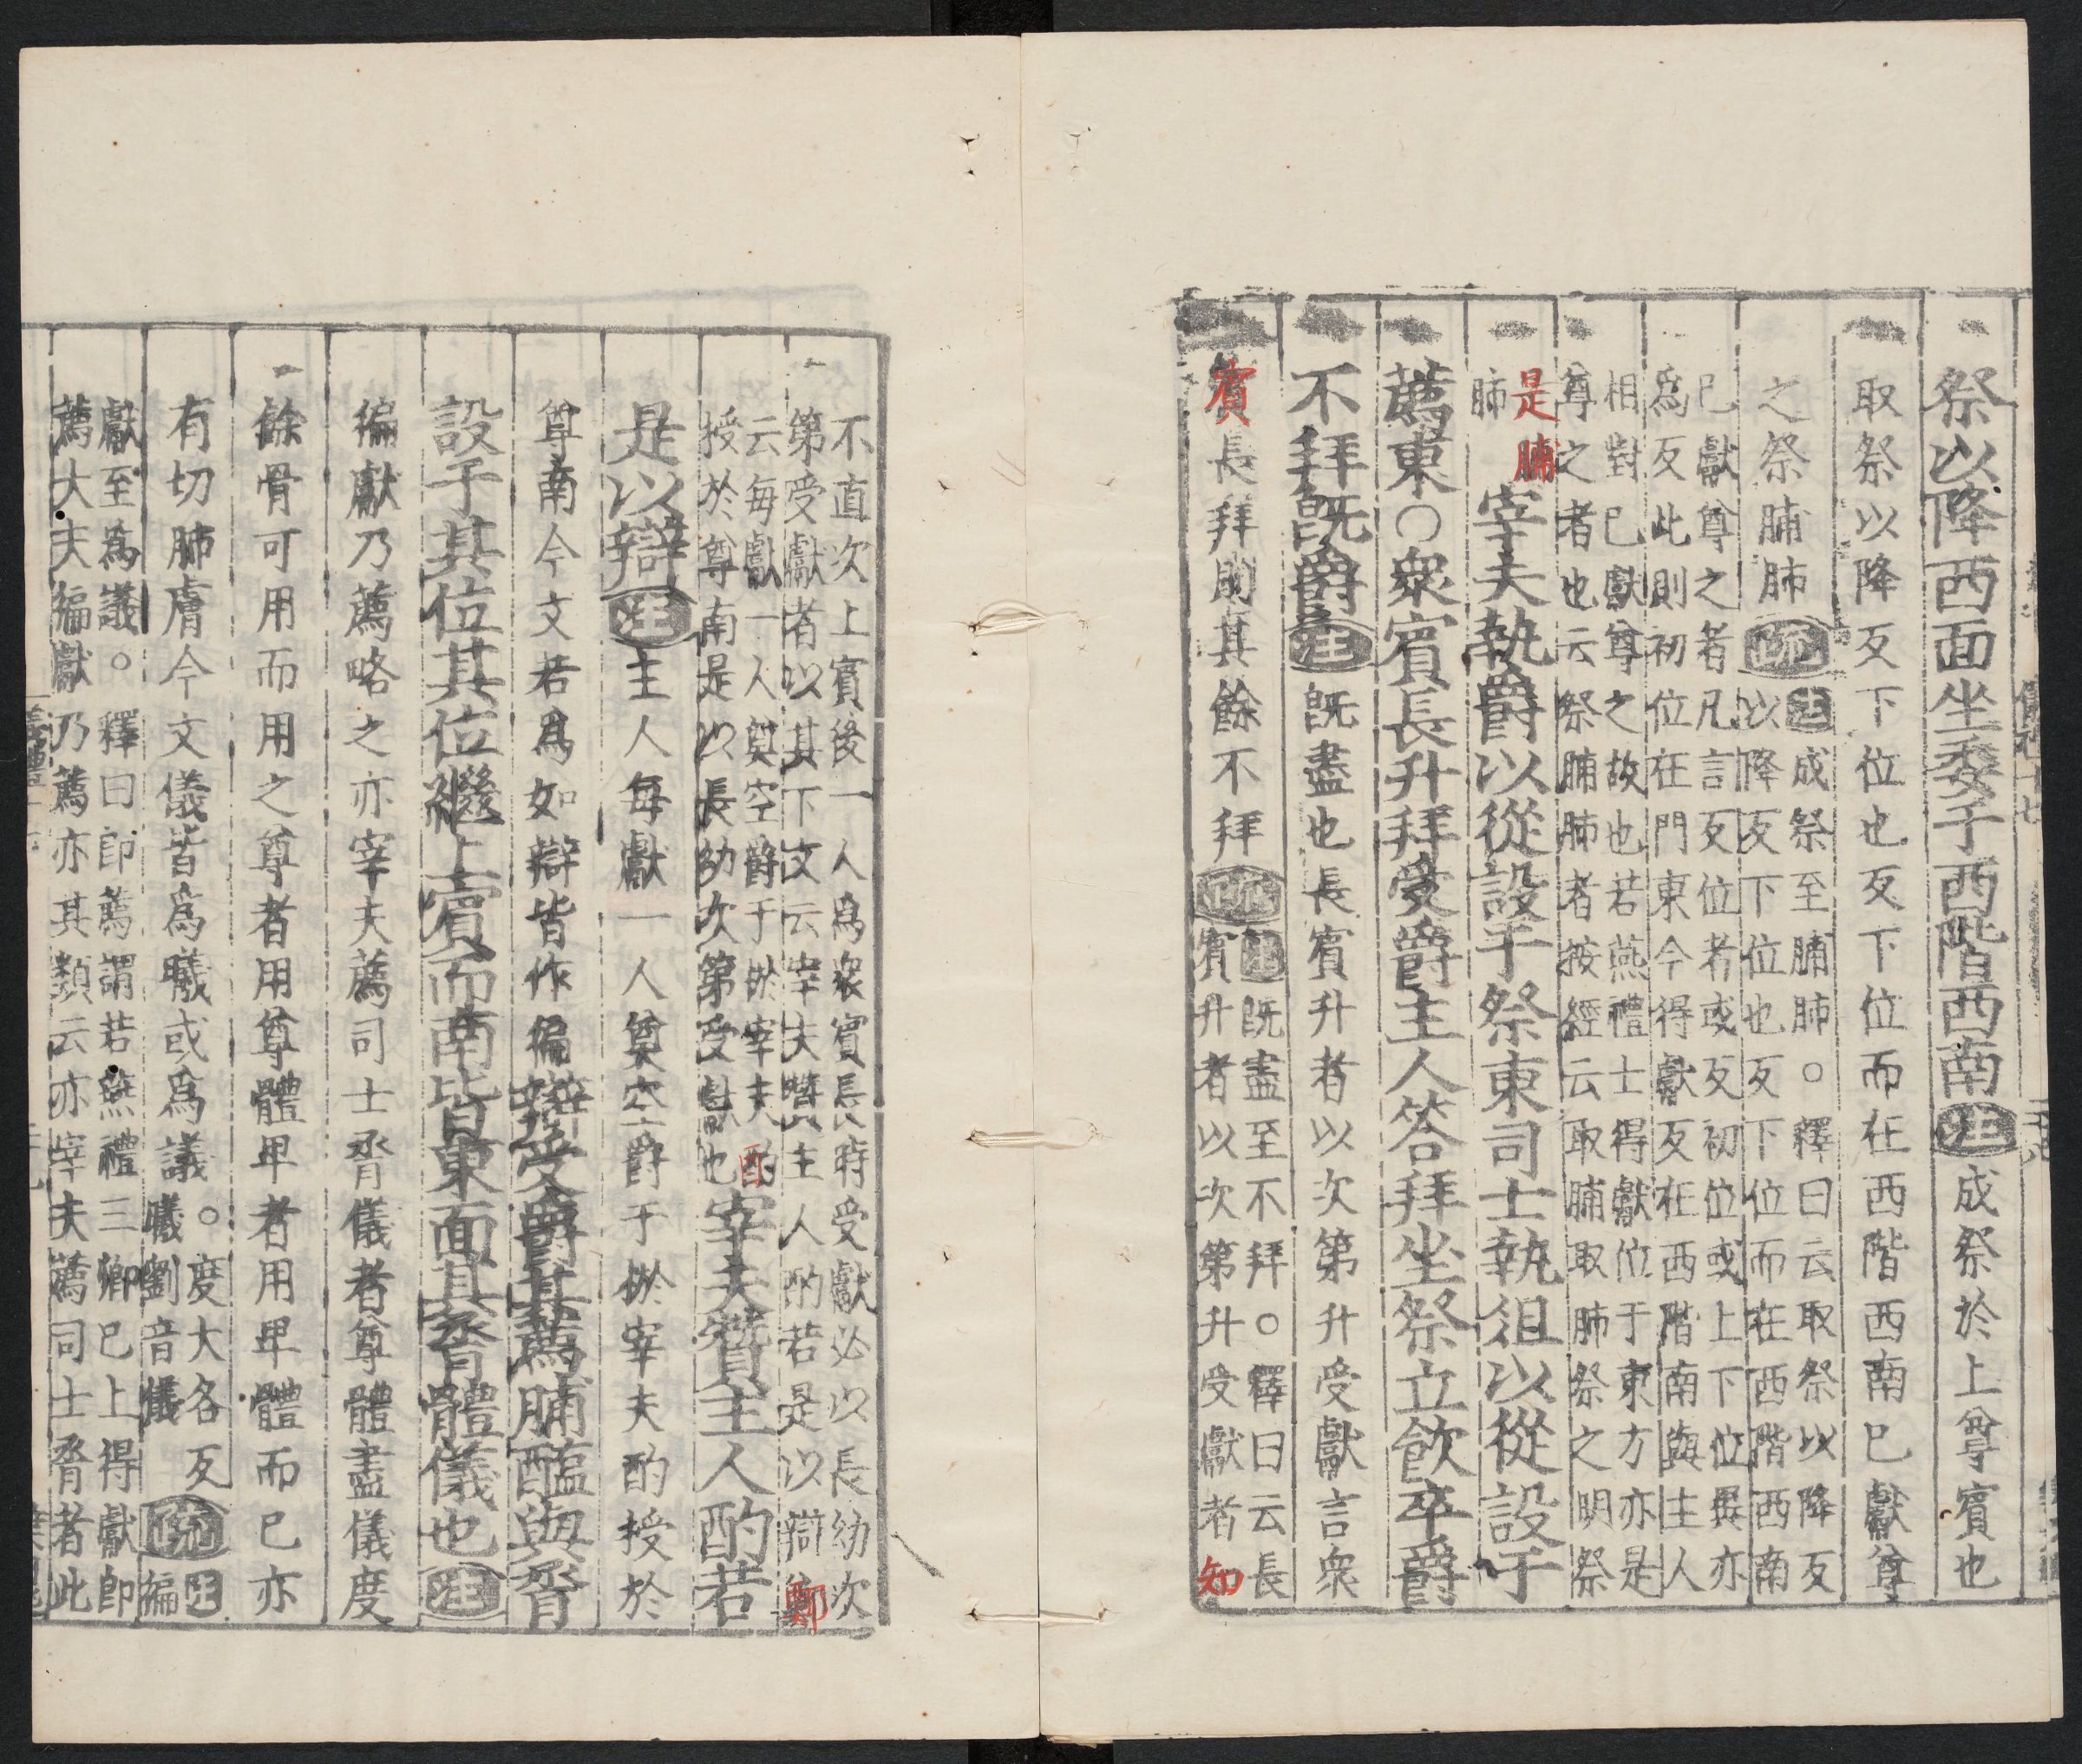 祭以降西面坐委于西階西南注成祭於上尊賓也
取祭以降反下位也反下位而在西階西南已獻尊
之祭脯肺疏注成祭至脯肺○釋曰云取祭以降反
以降反下位也反下位而在西階西南
已獻尊之者凡言反位者或反初位或上下位異亦
爲反此則初位在門東今得獻反在西階南與主人
相對已獻尊之故也若燕禮士得獻位于東方亦是
尊之者也云祭脯肺者按經云取脯取肺祭之明祭
是脯
肺宰夫執爵以從設于祭東司士執俎以從設于
薦東○衆賓長升拜受爵主人荅拜坐祭立飮卒爵
不拜旣爵注旣盡也長賓升者以次第升受獻言衆
賓長拜則其餘不拜疏注旣盡至不拜○釋曰云長
賓升者以次第升受獻者知
不直次上賓後一人爲衆賓長時受獻必以長幼次
第受獻者以其下文云宰夫贊主人酌若是以辯鄭
云每獻一人奠空爵于棜宰夫酌
授於尊南是以長幼次第受獻也宰夫贊主人酌若
是以辯注主人每獻一人奠空爵于棜宰夫酌授於
尊南今文若爲如辯皆作徧辯受爵其薦脯醢與脀
設于其位其位繼上賓而南皆東面其脀體儀也注
徧獻乃薦略之亦宰夫薦司士脀儀者尊體盡儀度
餘骨可用而用之尊者用尊體卑者用卑體而已亦
有切肺膚今文儀皆爲曦或爲議○度大各反
曦劉音儀疏注徧
獻至爲議○釋曰卽薦謂若燕禮三卿已上得獻卽
薦大夫徧獻乃薦亦其類云亦宰夫薦司士脀者此